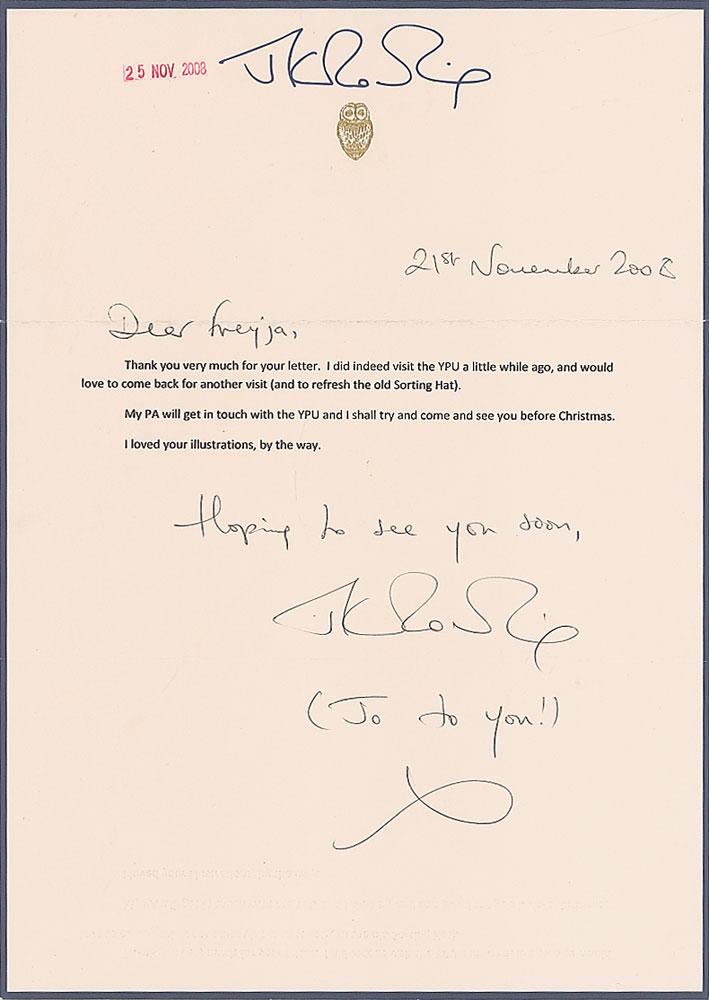 25 NOV 2008
JKRowling
21st November 2008
Dear Freyja,
Thank you very much for your letter. I did indeed visit the YPU a little while ago, and would
love to come back for another visit (and to refresh the old Sorting Hat).
My PA will get in touch with the YPU and I shall try and come and see you before Christmas.
I loved your illustrations, by the way.
Hoping to see you soon,
JKRowling
(Jo to you!)
x